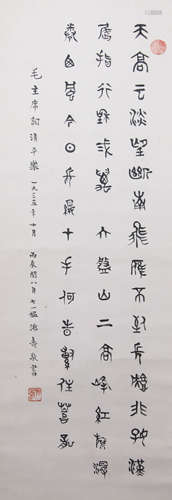 天高云淡望斷南飛雁不到長城非好漢
屈指行程二萬六盤山上高峰紅旗漫
卷西風今日長纓在手何時縛住蒼龍
毛主席詞清平樂 一九三五年十月 丙辰閏八月七一媪游壽敬書